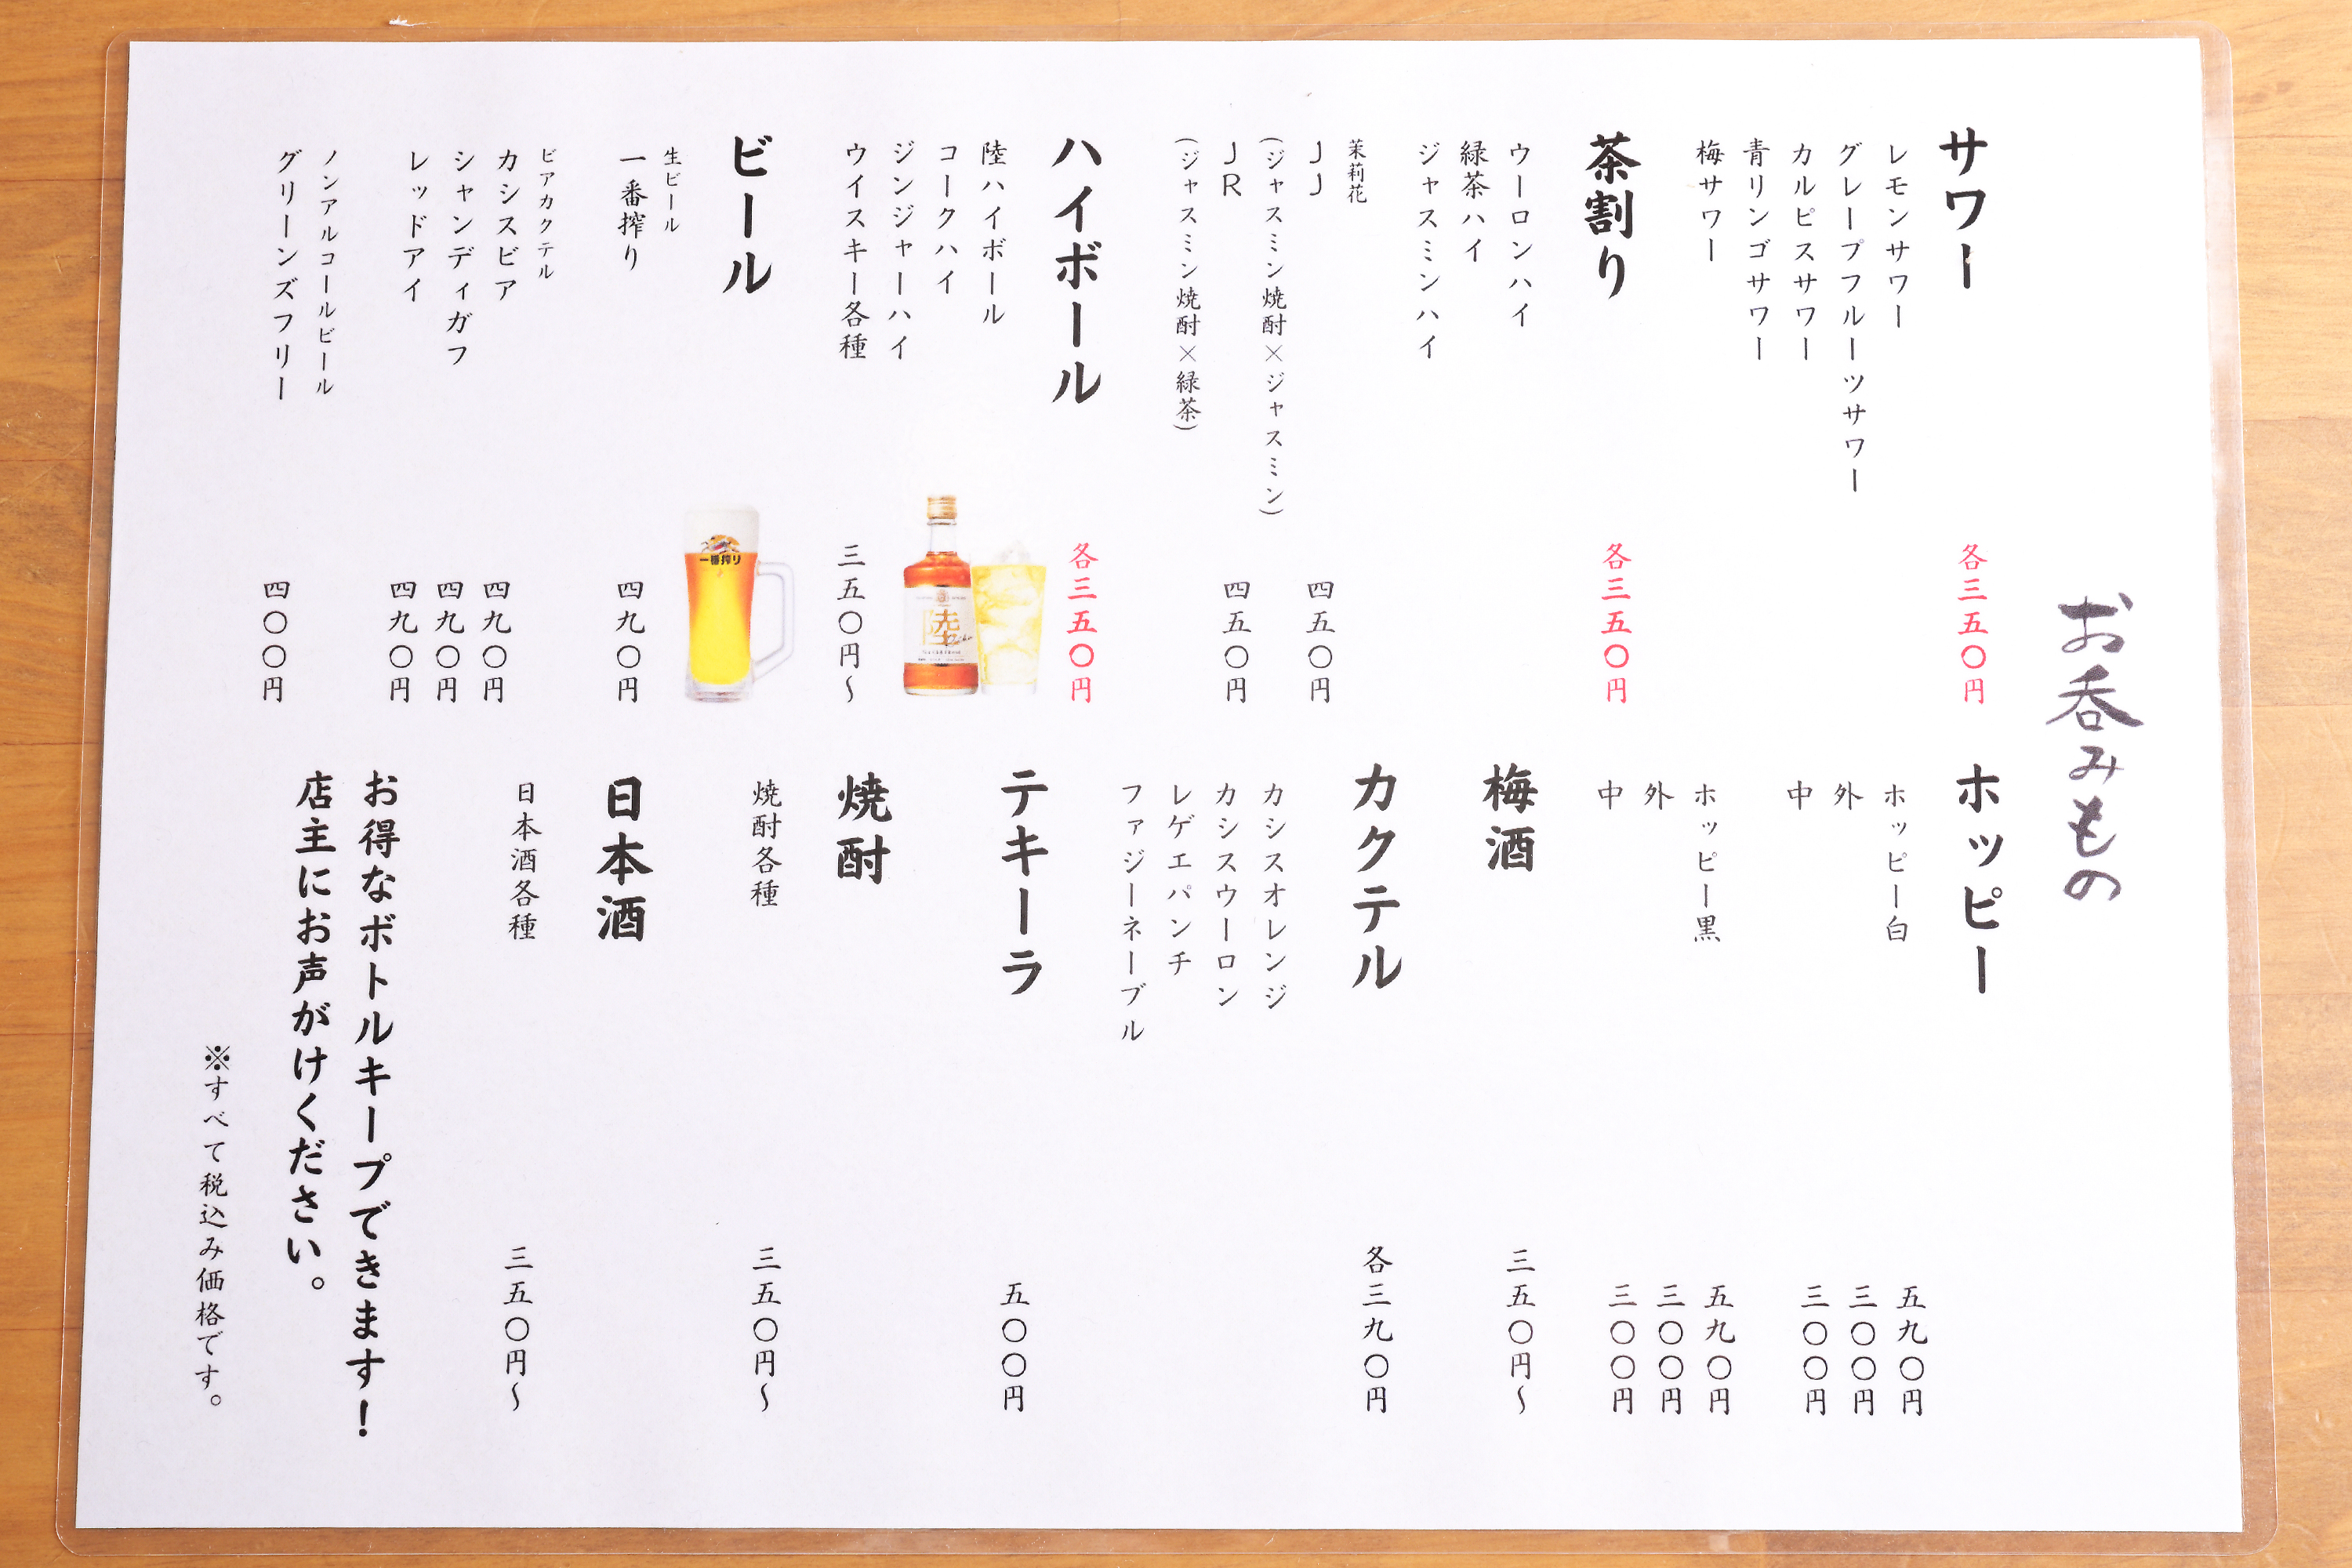 お呑みもの
サワー
各三五〇円
レモンサワー
グレープフルーツサワー
カルピスサワー
青リンゴサワー
梅サワー
茶割り
各三五〇円
ウーロンハイ
緑茶ハイ
ジャスミンハイ
茉莉花
JJ
四五〇円
(ジャスミン焼酎×ジャスミン)
JR
四五〇円
(ジャスミン焼酎×緑茶)
ハイボール
各三五〇円
陸ハイボール
コークハイ
ジンジャーハイ
ウイスキー各種
三五〇円〜
陸
ビール
一番搾り
生ビール
一番搾り
四九〇円
ビアカクテル
カシスビア
四九〇円
シャンディガフ
四九〇円
レッドアイ
四九〇円
ノンアルコールビール
グリーンズフリー
四〇〇円
ホッピー
ホッピー白
五九〇円
外
三〇〇円
中
三〇〇円
ホッピー黒
五九〇円
外
三〇〇円
中
三〇〇円
梅酒
三五〇円〜
カクテル
各三九〇円
カシスオレンジ
カシスウーロン
レゲエパンチ
ファジーネーブル
テキーラ
五〇〇円
焼酎
焼酎各種
三五〇円〜
日本酒
日本酒各種
三五〇円〜
お得なボトルキープできます！
店主にお声がけください。
※すべて税込み価格です。